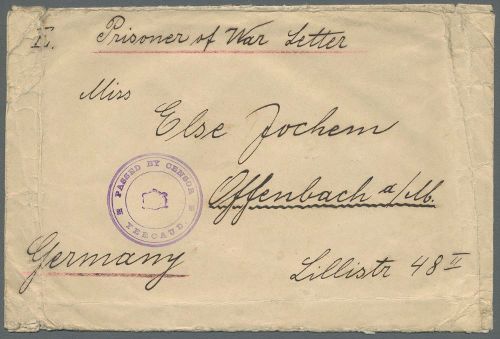 E.
Prisoner of War Letter
Miss
Else Jochem
Offenbach a/M.
PASSED BY CENSOR
YERCAUD
Germany
Lillistr 48 II